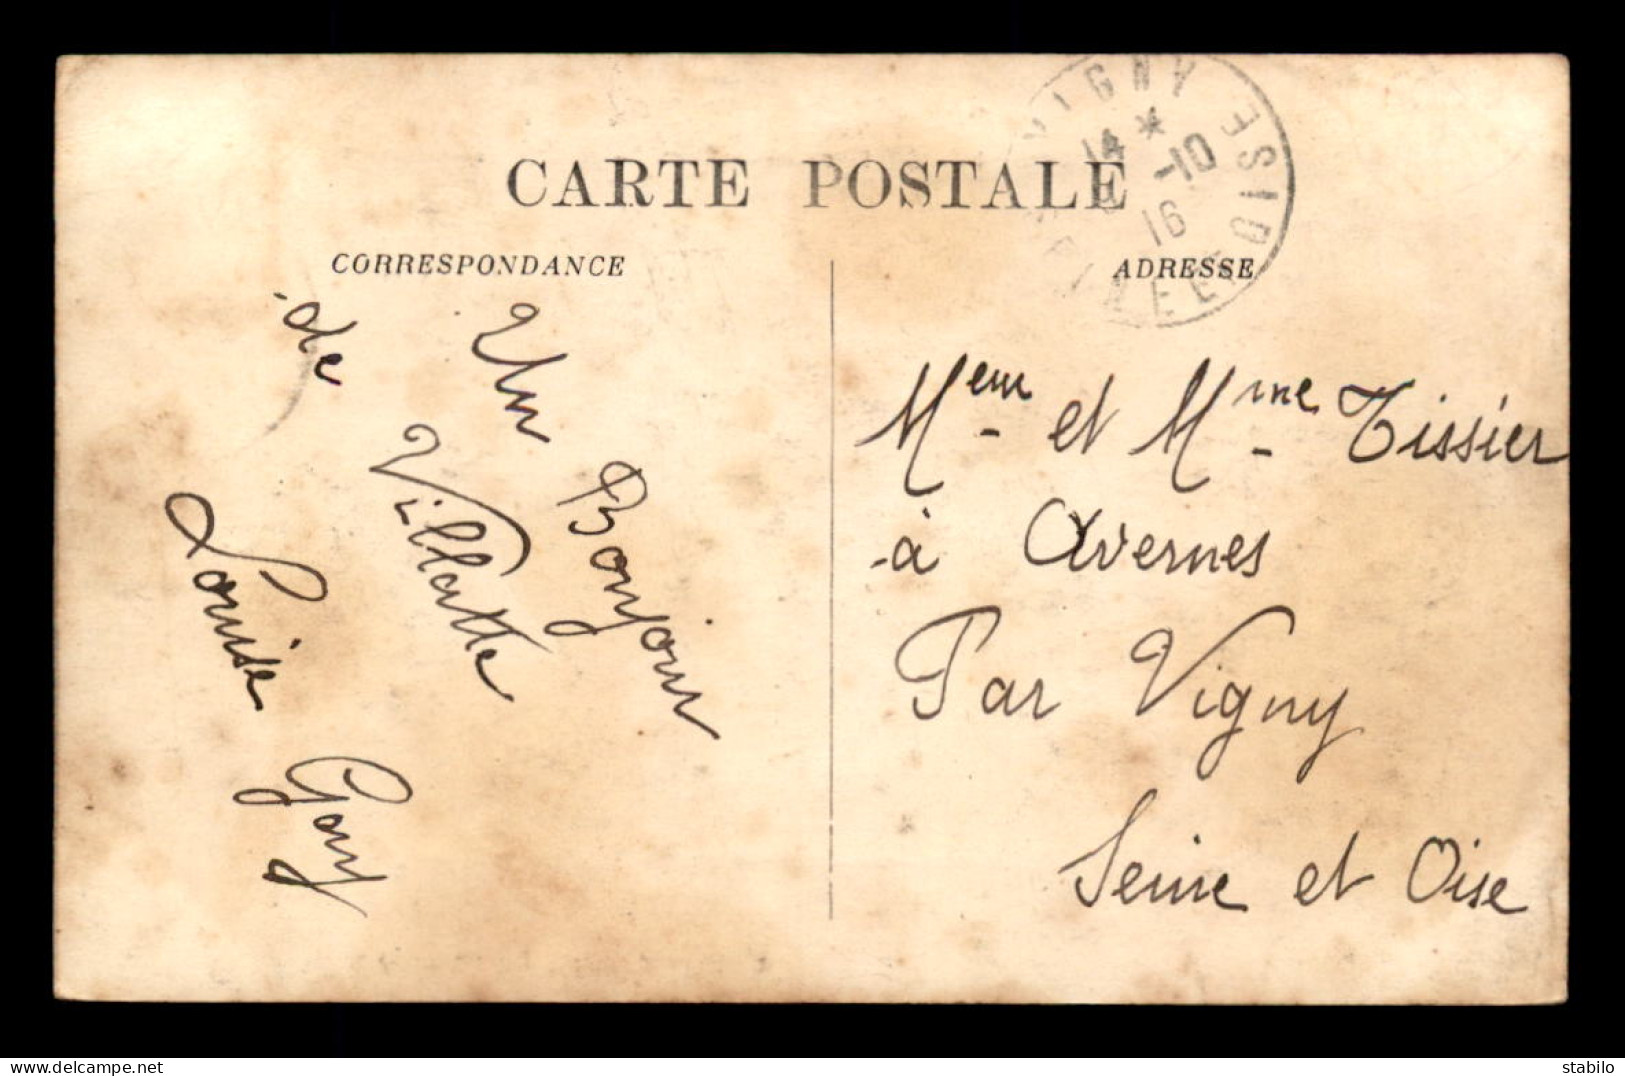 CARTE POSTALE
CORRESPONDANCE
ADRESSE
VIGNY
14 * -10
16
SEINE ET OISE
Un Bonjour
de Villatte
Louise Gony
Meur et Mme Tissier
à Avernes
Par Vigny
Seine et Oise
delcampe.net
stabilo